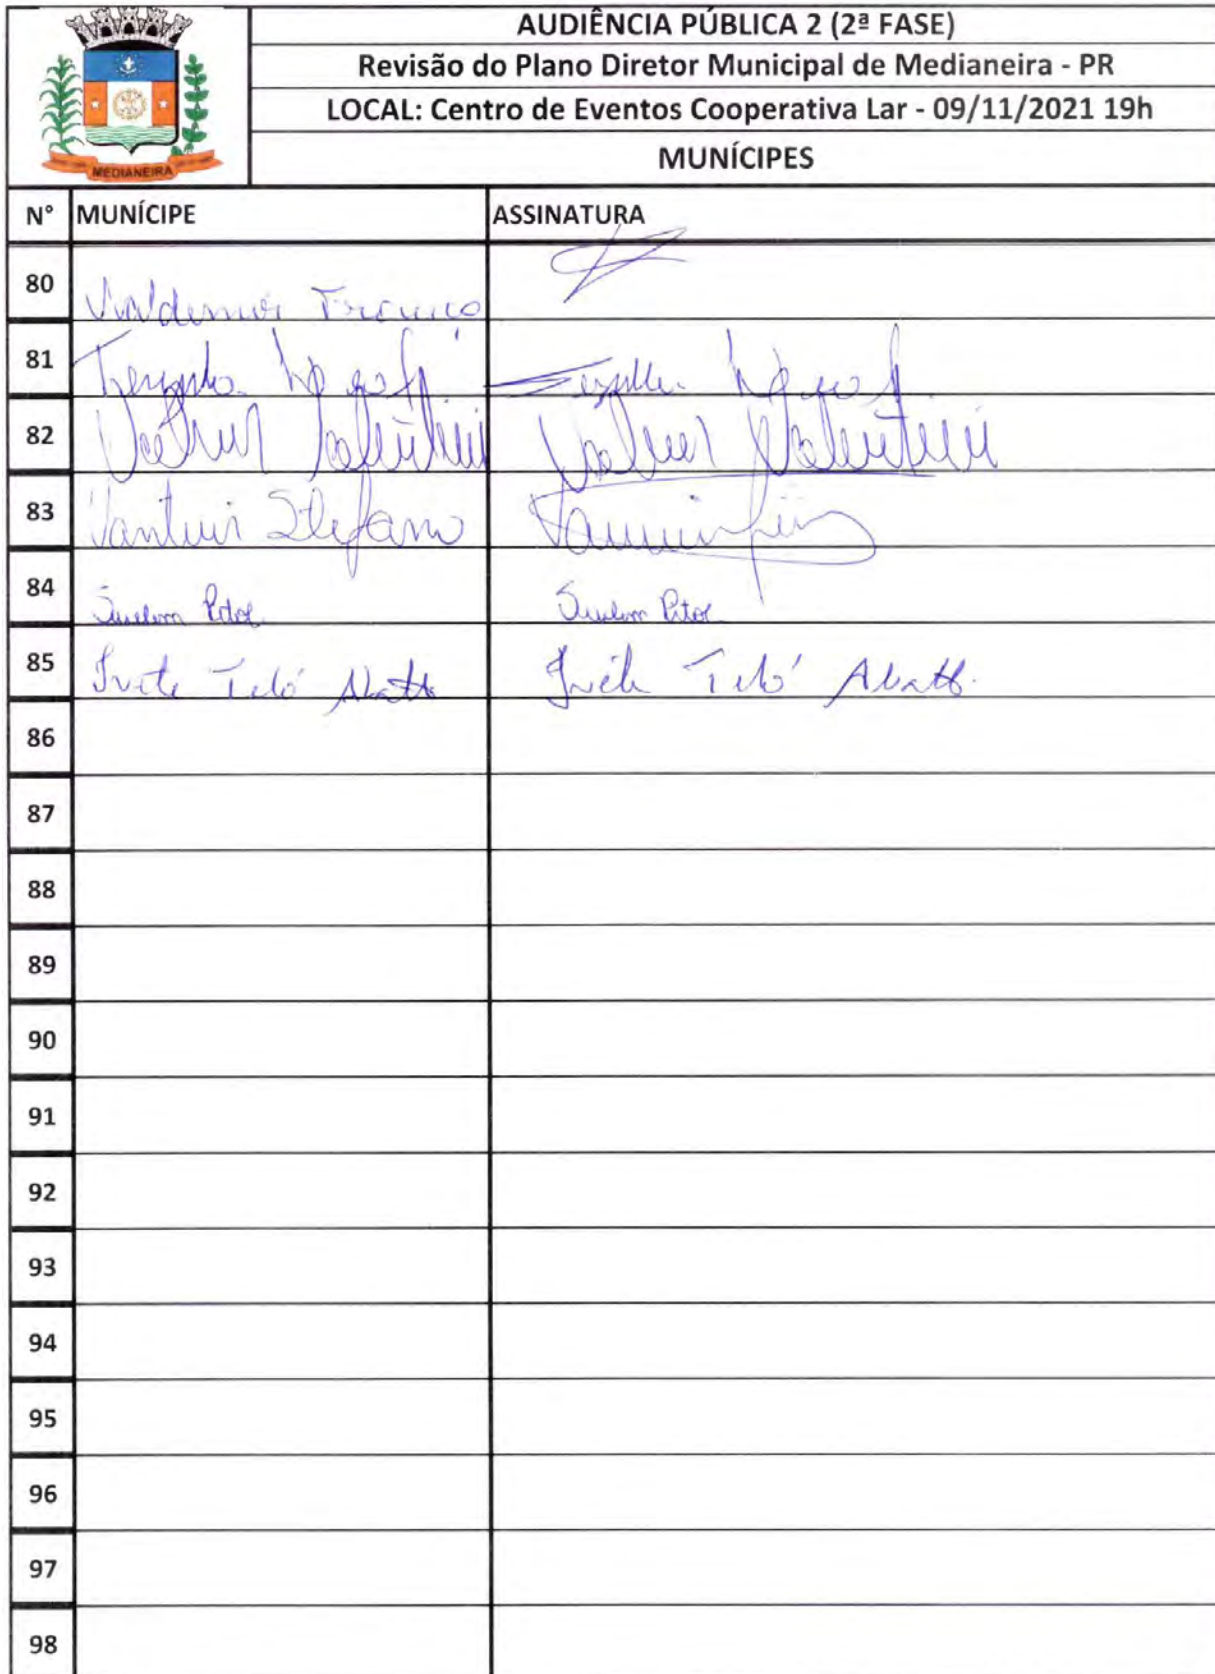 AUDIÊNCIA PÚBLICA 2 (2ª FASE)
Revisão do Plano Diretor Municipal de Medianeira - PR
LOCAL: Centro de Eventos Cooperativa Lar - 09/11/2021 19h
MUNÍCIPES
MEDIANEIRA
N° MUNÍCIPE ASSINATURA
80 Valdemir
81
82 Valmir Valentini Valmir Valentini
83 Vantuir Stefano
84 Suelem Pitol Suelem Pitol
85 Ivete Teló Ivete Teló
86
87
88
89
90
91
92
93
94
95
96
97
98